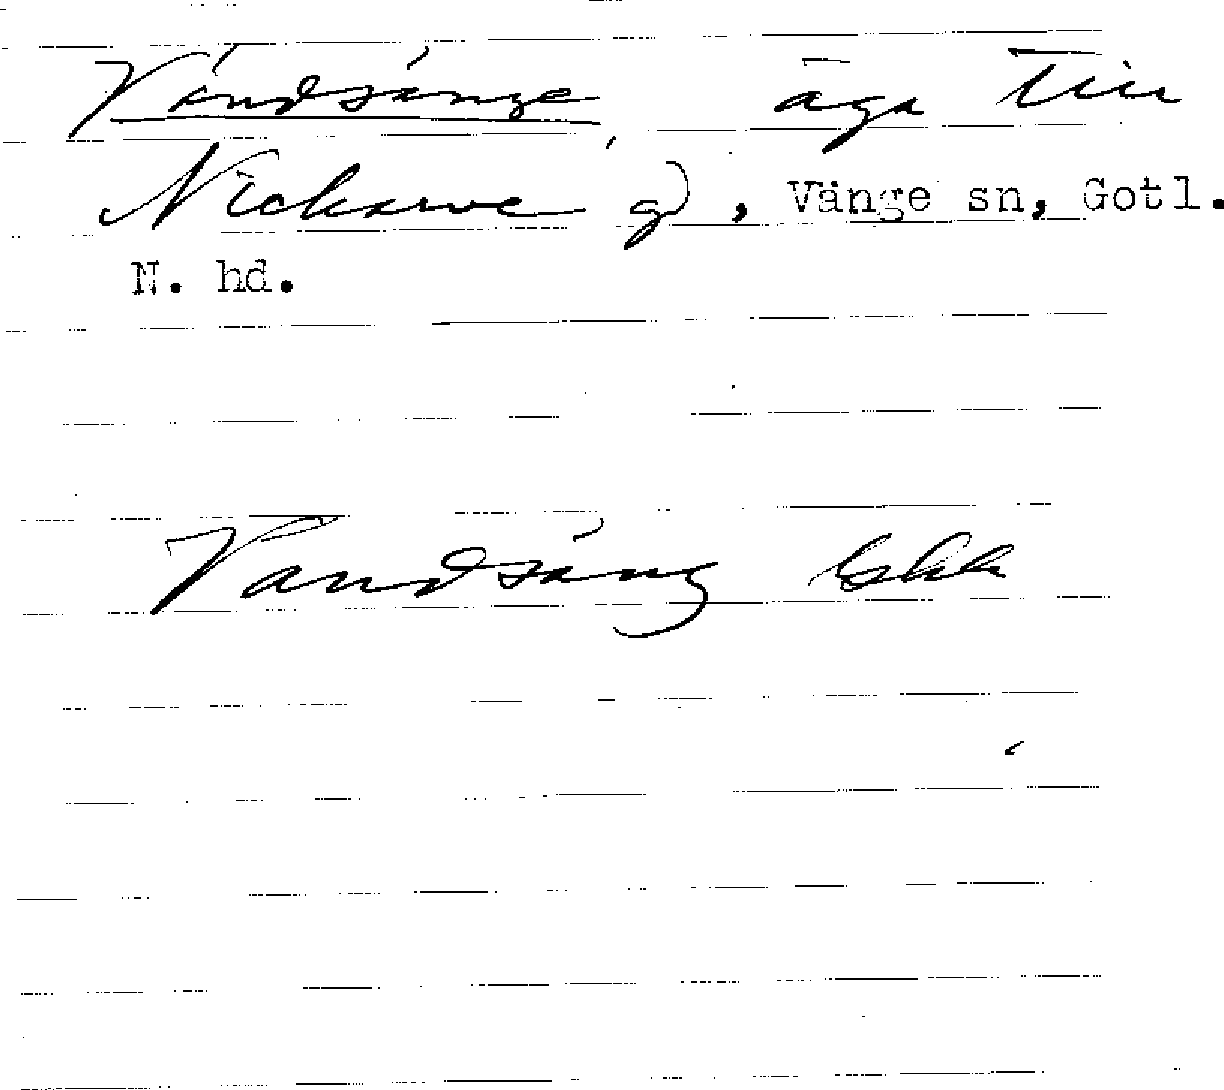 Vändsänge äga till
Nickarve gd, Vänge sn, Gotl.
N. hd.
Vandsäng